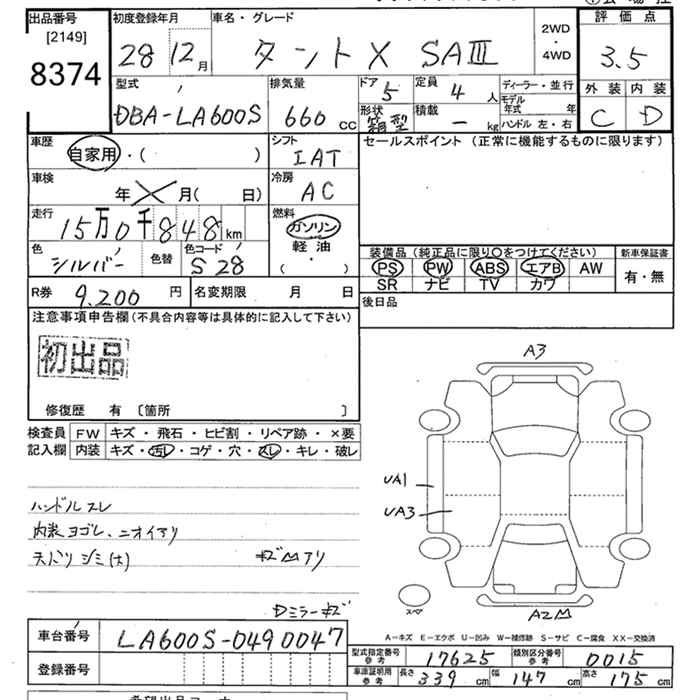 出品番号 初度登録年月 車名・グレード 2WD・4WD 評価点
[2149]
8374 28 12月 タント X SAⅢ 3.5
型式 排気量 ドア 5 定員 4人 ディーラー・並行 外装 内装
DBA-LA600S 660cc 形状 箱型 積載 - kg モデル年式 年 C D
ハンドル 左・右
車歴 自家用・( ) シフト IAT セールスポイント (正常に機能するものに限ります)
車検 年 月( 日) 冷房 AC
走行 15万0千848km 燃料 ガソリン
軽油
( ・ )
色 シルバー 色替 色コード S28
装備品 (純正品に限り〇をつけてください) 新車保証書
PS PW ABS エアB AW 有・無
SR ナビ TV カワ
R券 9,200円 名変期限 月 日 後日品
注意事項申告欄(不具合内容等は具体的に記入して下さい)
初出品
修復歴 有 [箇所 ]
検査員 FW キズ・飛石・ヒビ割・リペア跡・×要
記入欄 内装 キズ・汚レ・コゲ・穴・スレ・キレ・破レ
A3
UA1
UA3
ハンドルスレ
内装ヨゴレ、ニオイアリ
天バリシミ(大)
Dミラーキズ
スペア
A-キズ E-エクボ U-凹み W-補修跡 S-サビ C-腐食 XX-交換済
車台番号 LA600S-0490047
型式指定番号 参考 17625 類別区分番号 参考 0015
登録番号
車庫証明用 参考 長さ 339cm 幅 147cm 高さ 175cm